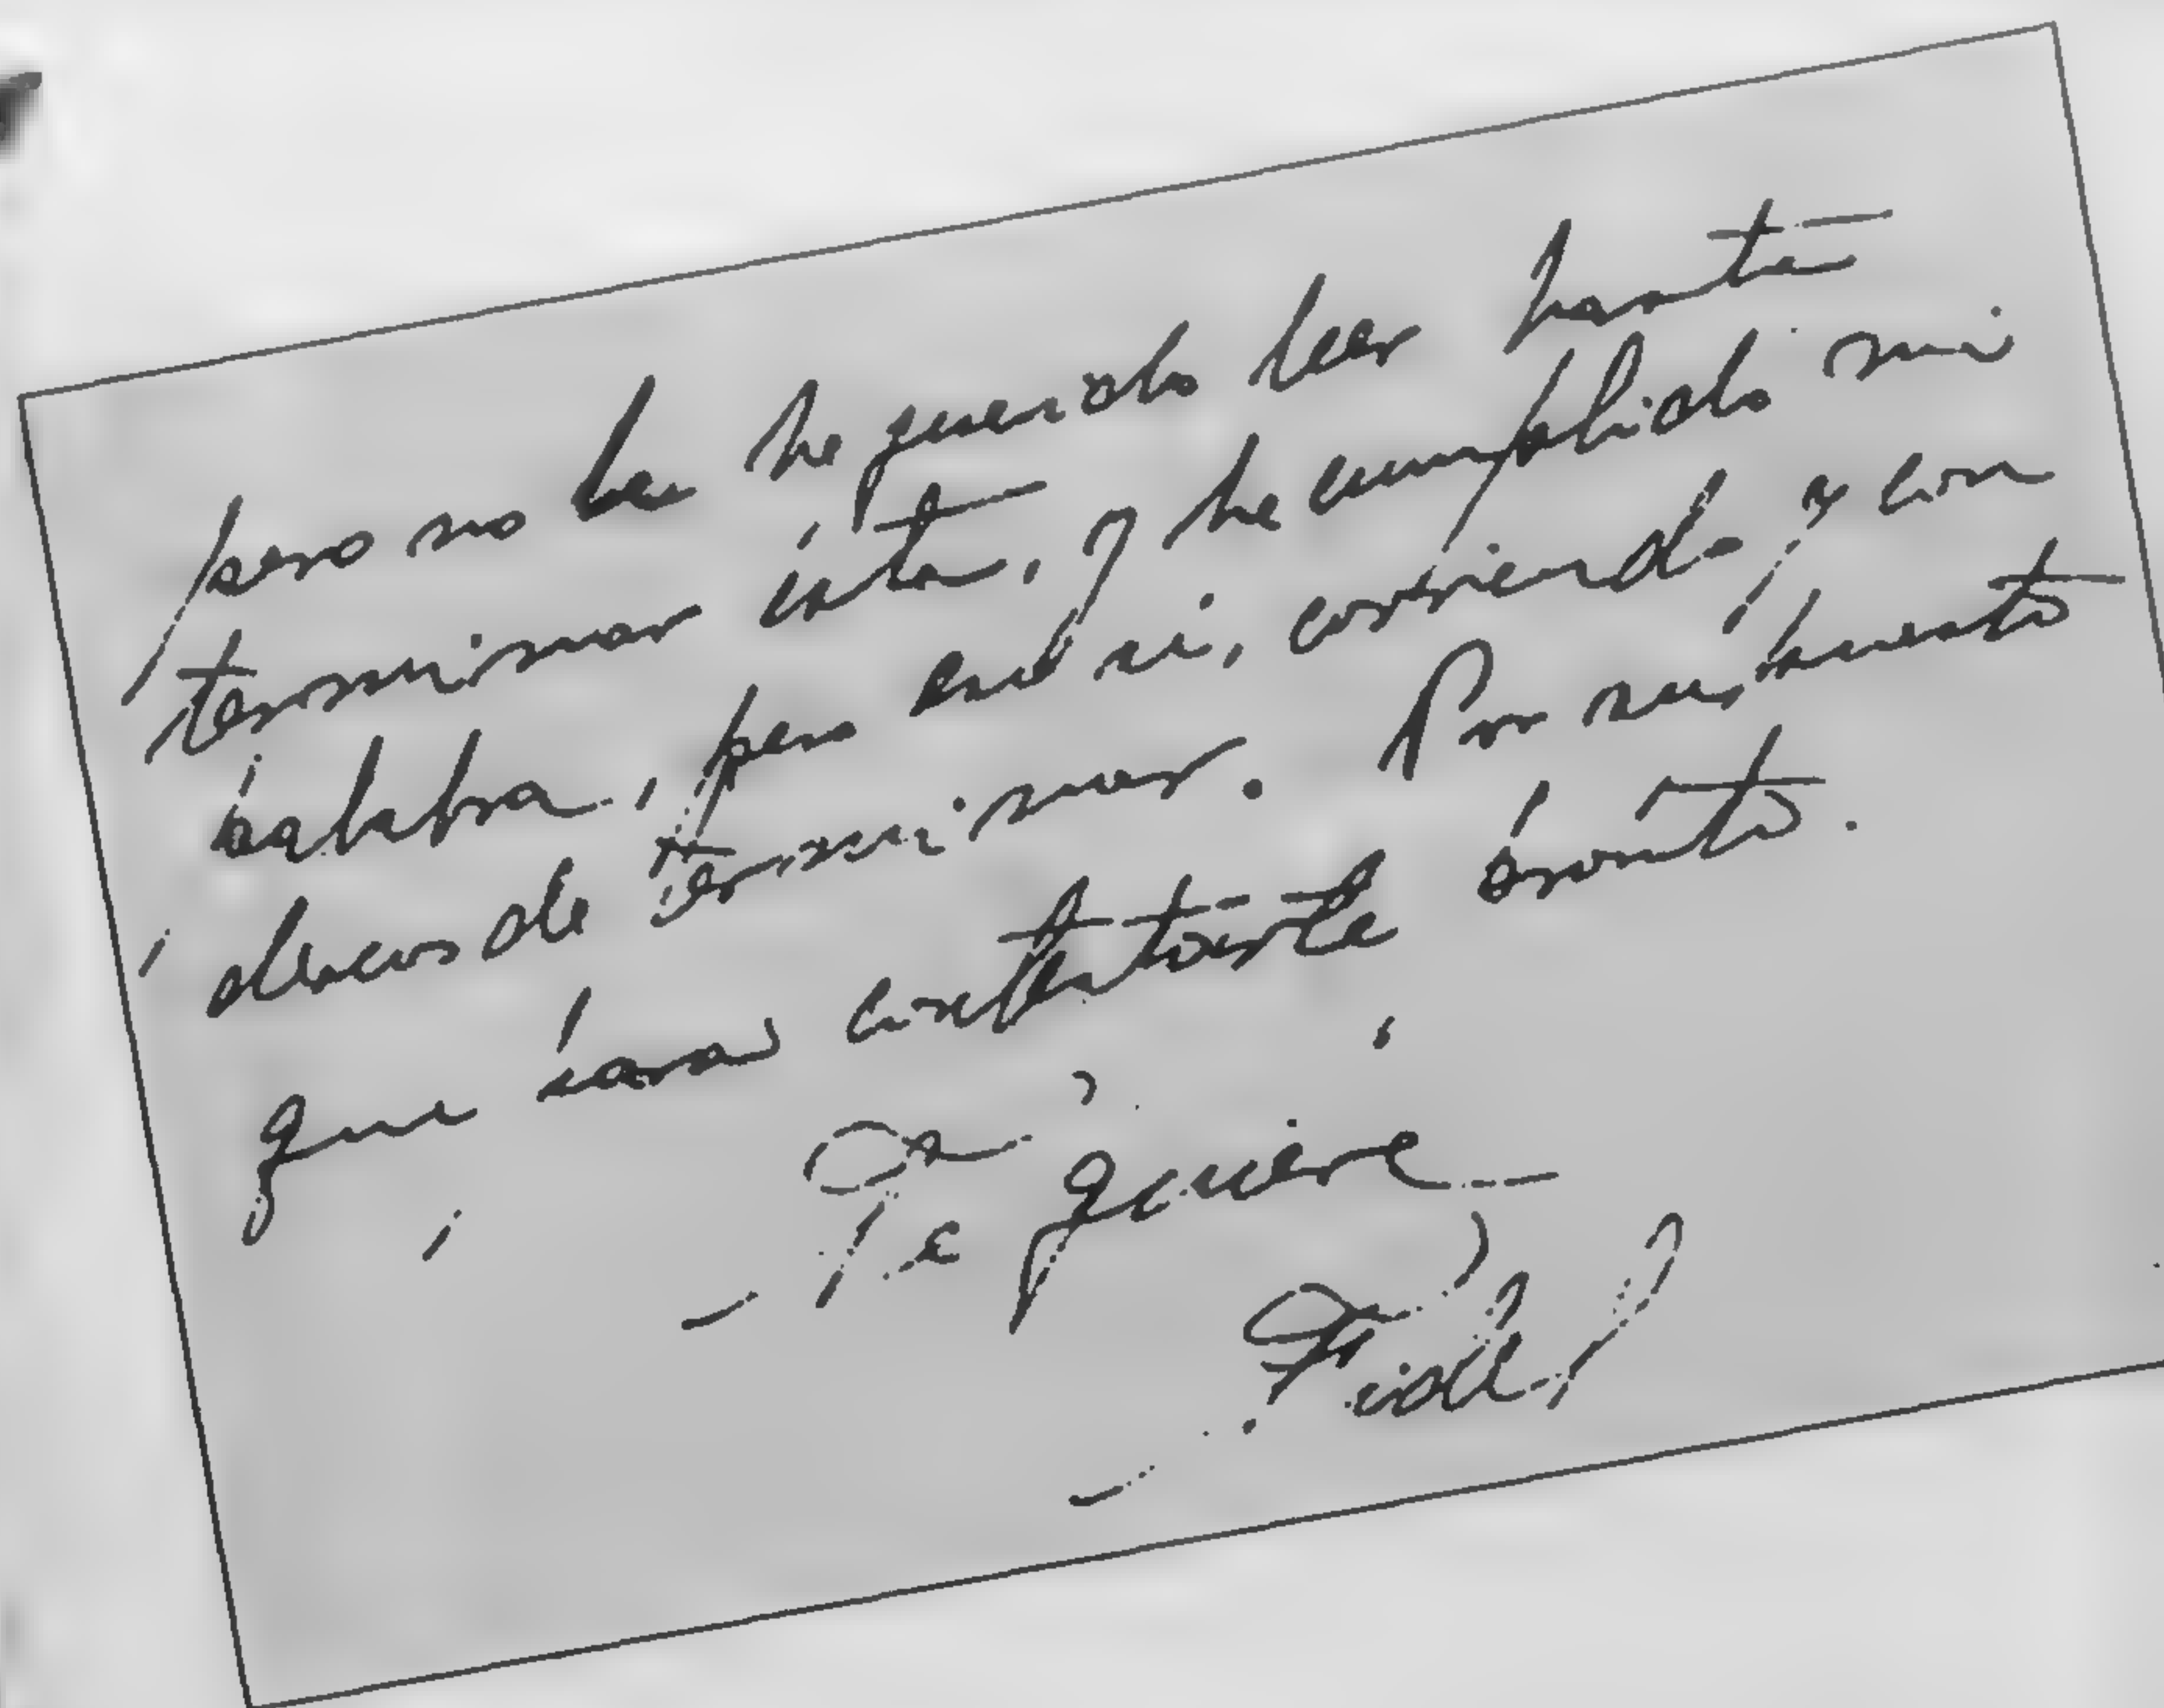 pero no la he querido leer hasta
terminar ésta, y he cumplido mi
palabra, pero eso sí, corriendo y con
deseos de terminar. Por supuesto
que para contestarte pronto.
Te quiere
Fidel